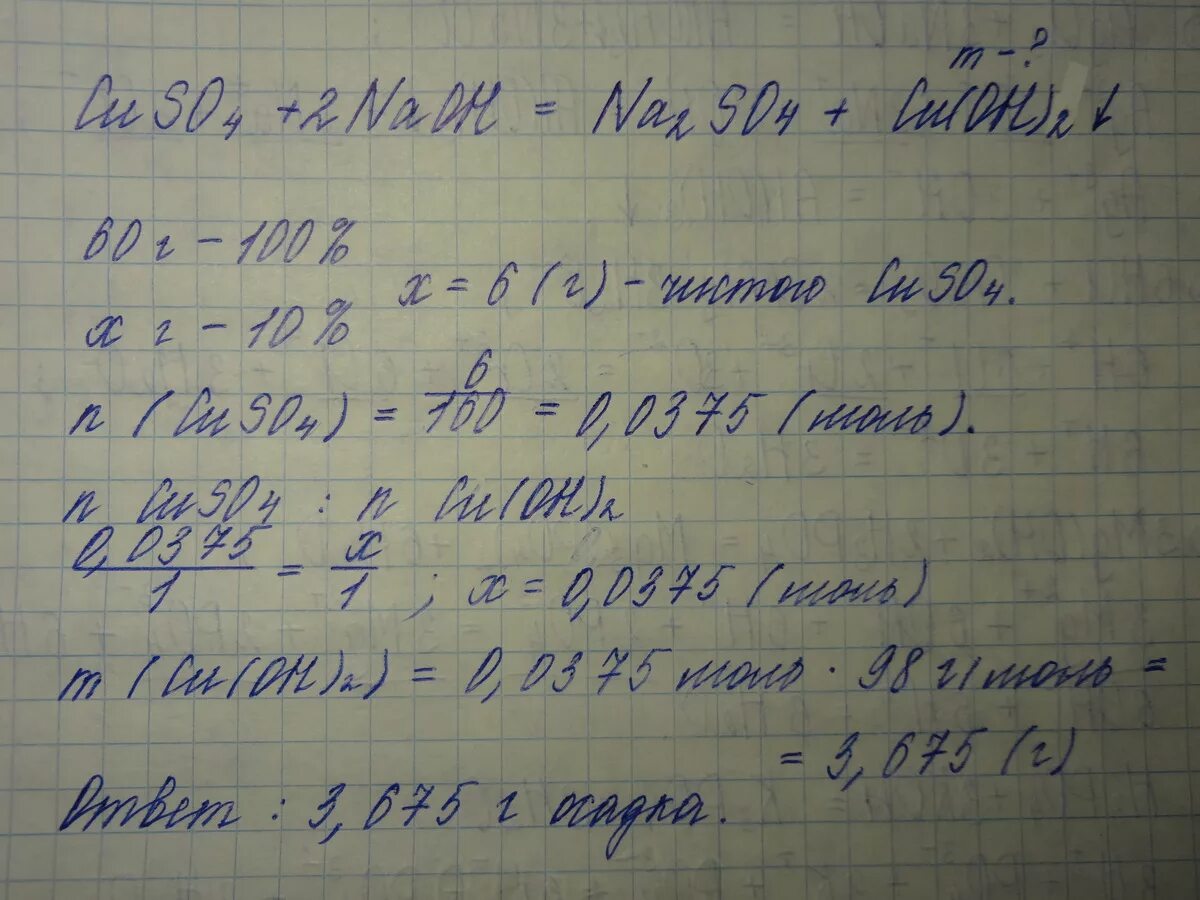 m - ?
CuSO₄ + 2NaOH = Na₂SO₄ + Cu(OH)₂↓
60 г - 100%
x = 6 (г) - чистого CuSO₄.
x г - 10%
n (CuSO₄) = 6/160 = 0,0375 (моль).
n CuSO₄ : n Cu(OH)₂
0,0375/1 = x/1 ; x = 0,0375 (моль)
m (Cu(OH)₂) = 0,0375 моль · 98 г/моль =
= 3,675 (г)
Ответ : 3,675 г осадка.